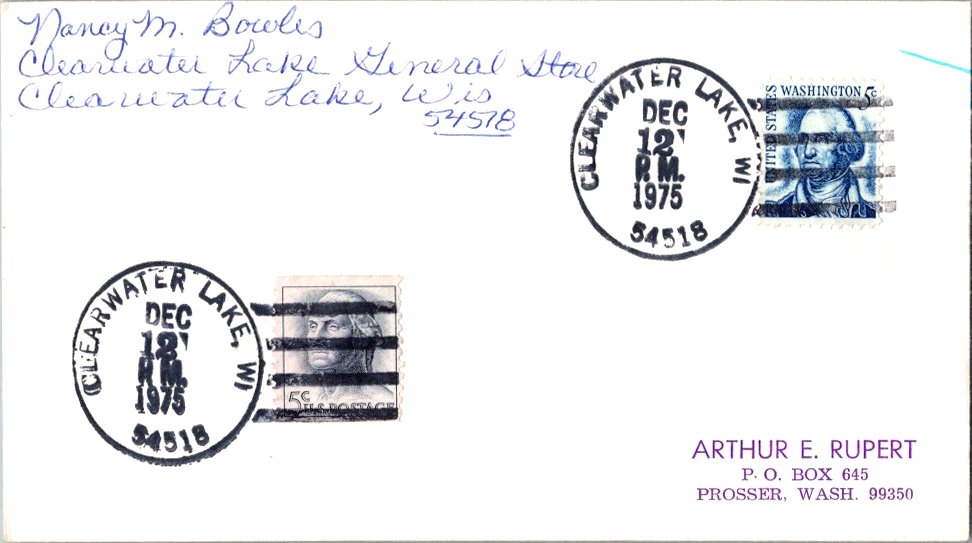 Nancy M. Bowles
Clearwater Lake General Store
Clearwater Lake, Wis
54518
CLEARWATER LAKE, WI
DEC
12
P.M.
1975
54518
UNITED STATES
WASHINGTON 5c
CLEARWATER LAKE, WI
DEC
12
P.M.
1975
54518
5c
U.S. POSTAGE
ARTHUR E. RUPERT
P. O. BOX 645
PROSSER, WASH. 99350